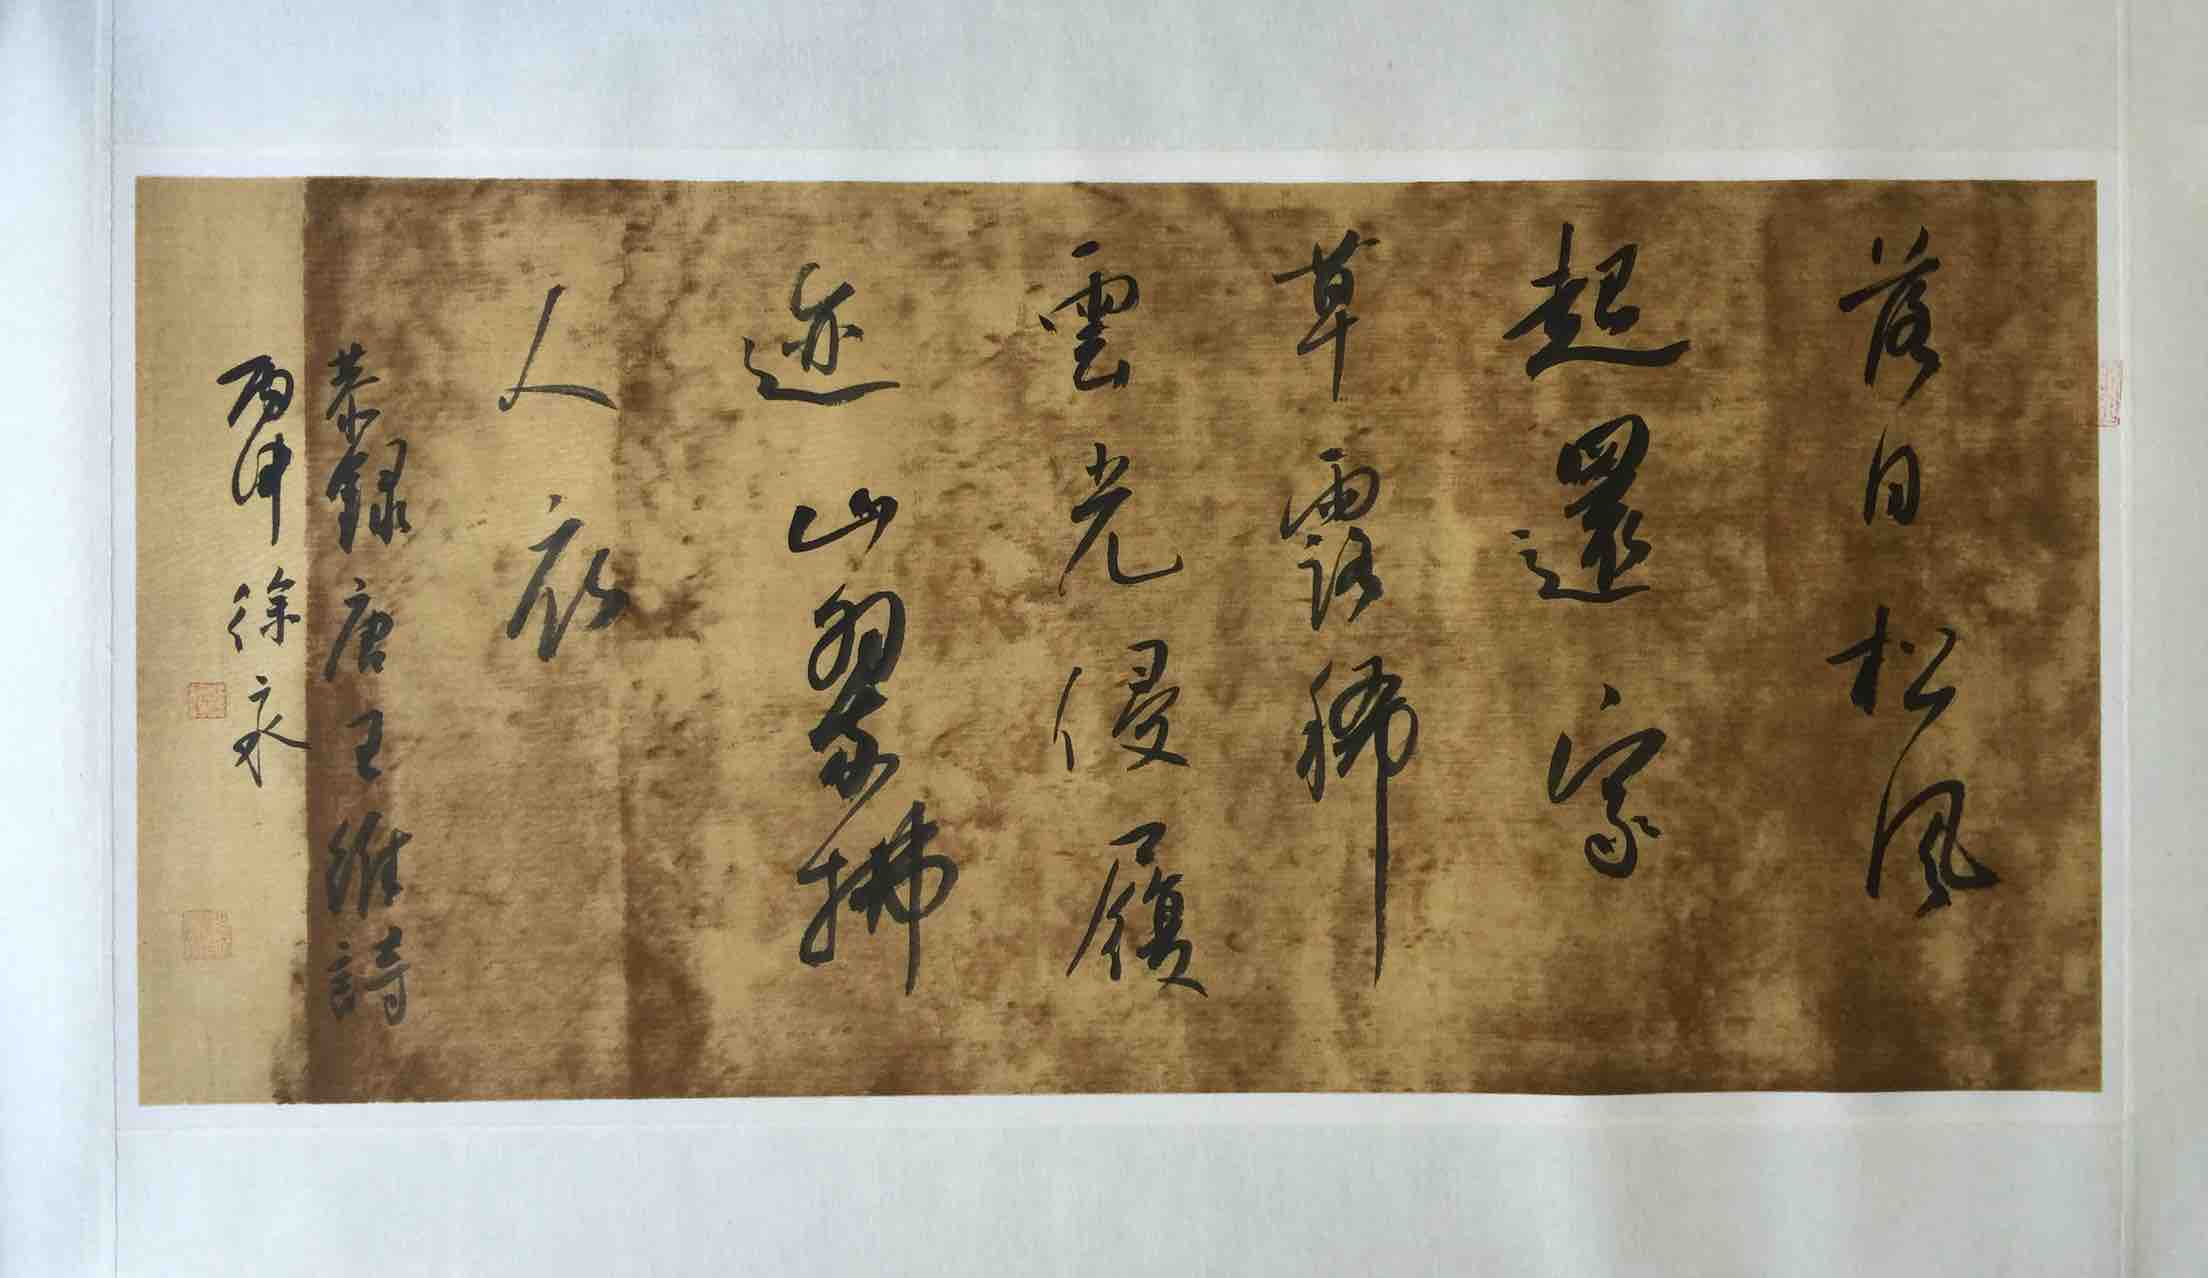 落日松风
起還家
草露稀
雲光侵履
迹山翠拂
人衣
恭録唐王維詩
丙申徐永